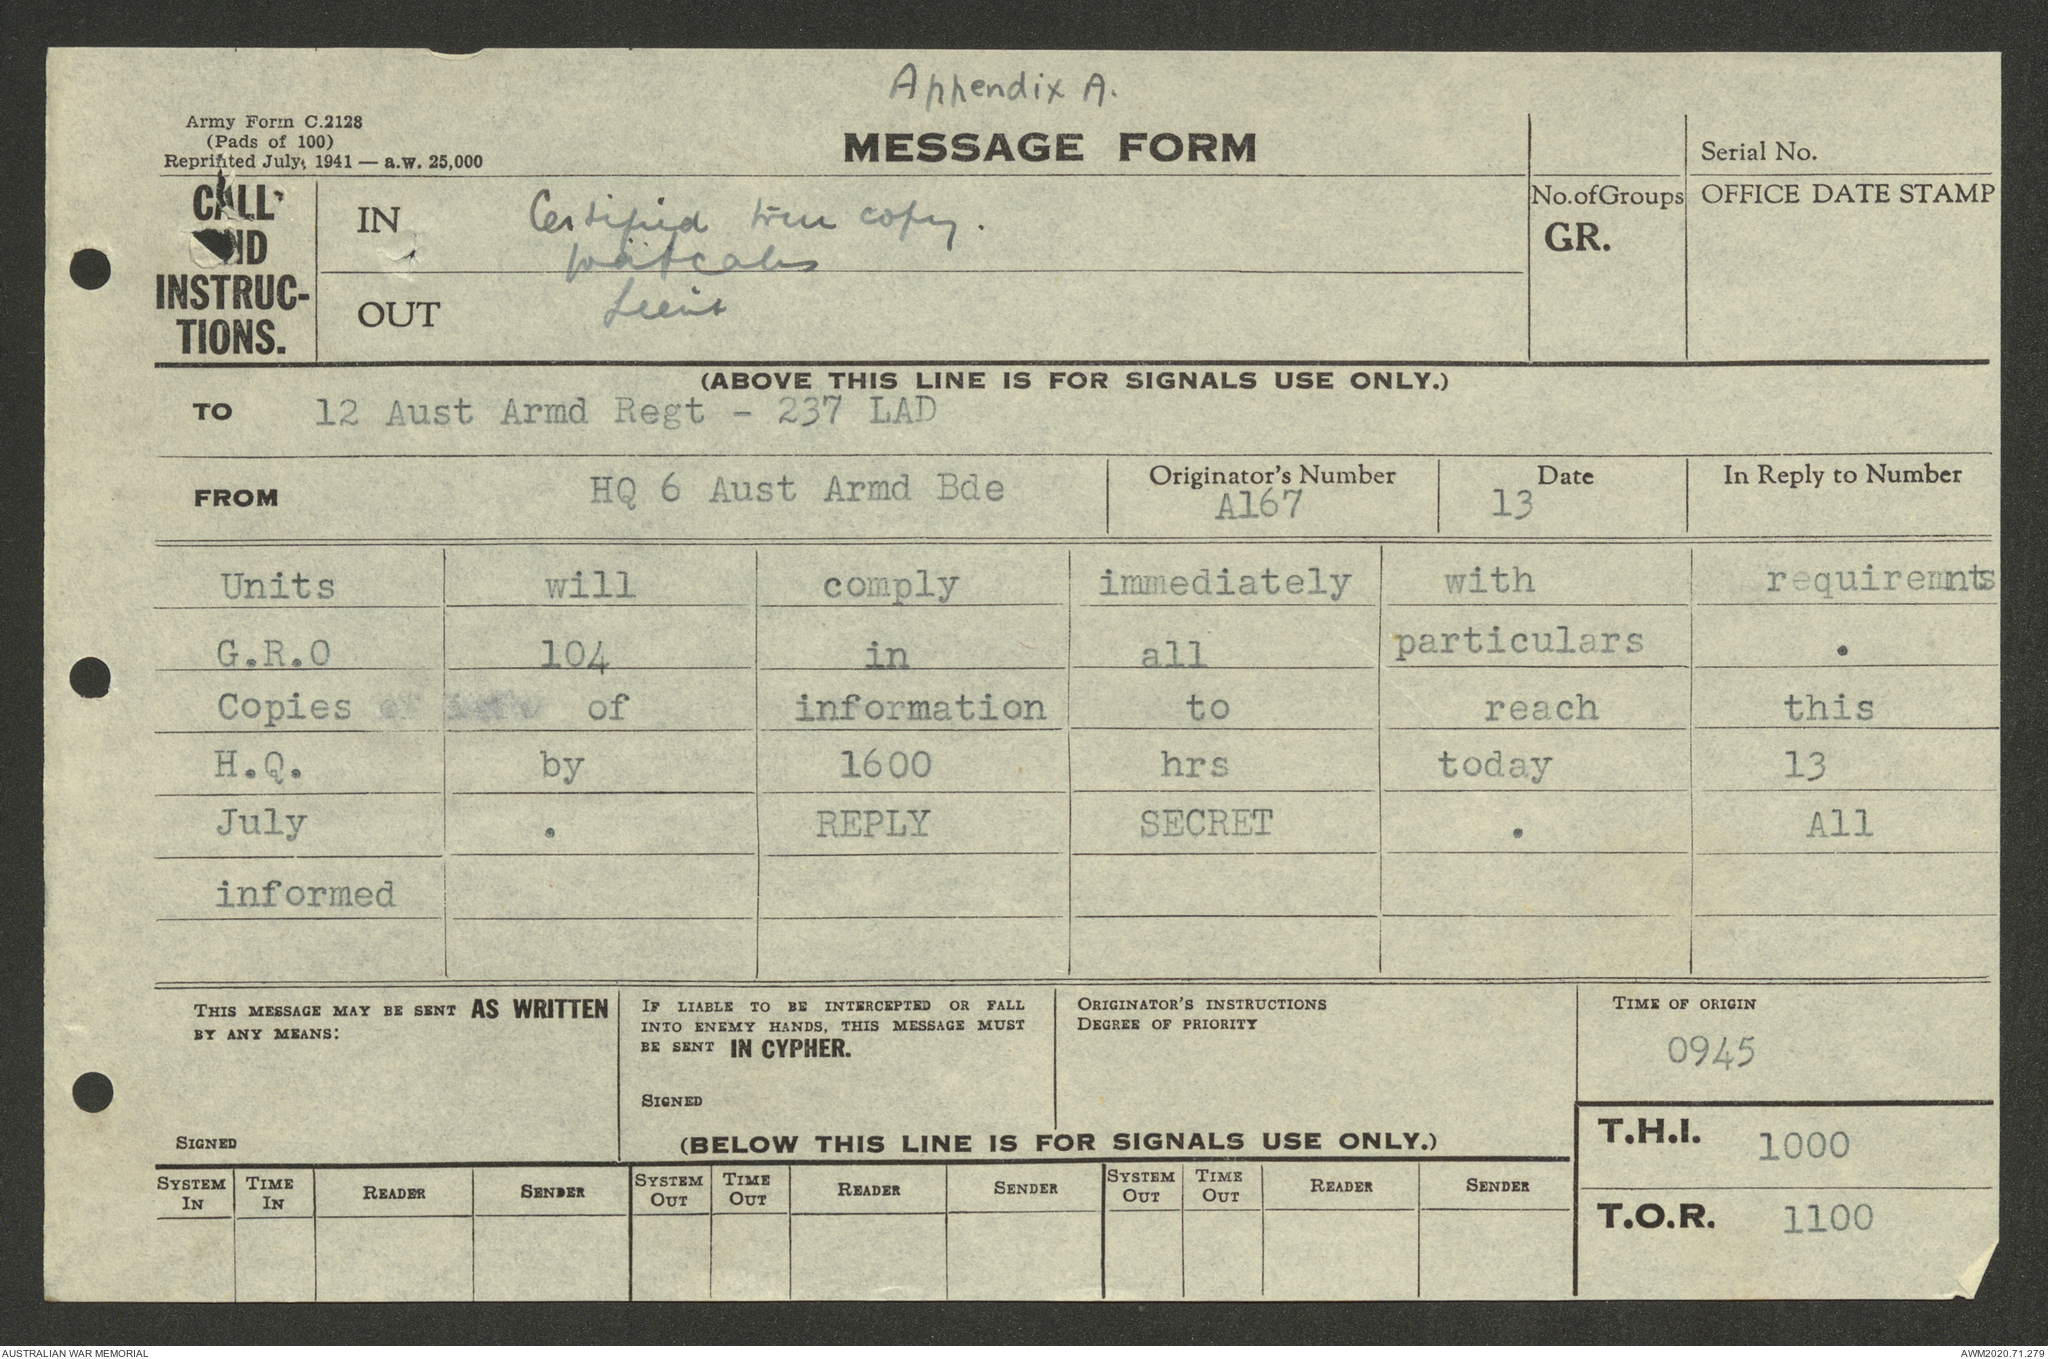 Appendix A.
Army Form C.2128
(Pads of 100)
Reprinted July, 1941 — a.w. 25,000
MESSAGE FORM
Serial No.
CALL AND INSTRUC-TIONS.
IN
Certified true copy.
Lieut
OUT
No. of Groups
GR.
OFFICE DATE STAMP
(ABOVE THIS LINE IS FOR SIGNALS USE ONLY.)
TO 12 Aust Armd Regt - 237 LAD
FROM HQ 6 Aust Armd Bde
Originator's Number
A167
Date
13
In Reply to Number
Units will comply immediately with requiremnts
G.R.O 104 in all particulars .
Copies of information to reach this
H.Q. by 1600 hrs today 13
July . REPLY SECRET . All
informed
THIS MESSAGE MAY BE SENT AS WRITTEN
BY ANY MEANS:
SIGNED
IF LIABLE TO BE INTERCEPTED OR FALL
INTO ENEMY HANDS, THIS MESSAGE MUST
BE SENT IN CYPHER.
SIGNED
ORIGINATOR'S INSTRUCTIONS
DEGREE OF PRIORITY
TIME OF ORIGIN
0945
(BELOW THIS LINE IS FOR SIGNALS USE ONLY.)
T.H.I. 1000
T.O.R. 1100
SYSTEM IN TIME IN READER SENDER SYSTEM OUT TIME OUT READER SENDER SYSTEM OUT TIME OUT READER SENDER
AUSTRALIAN WAR MEMORIAL
AWM2020.71.279